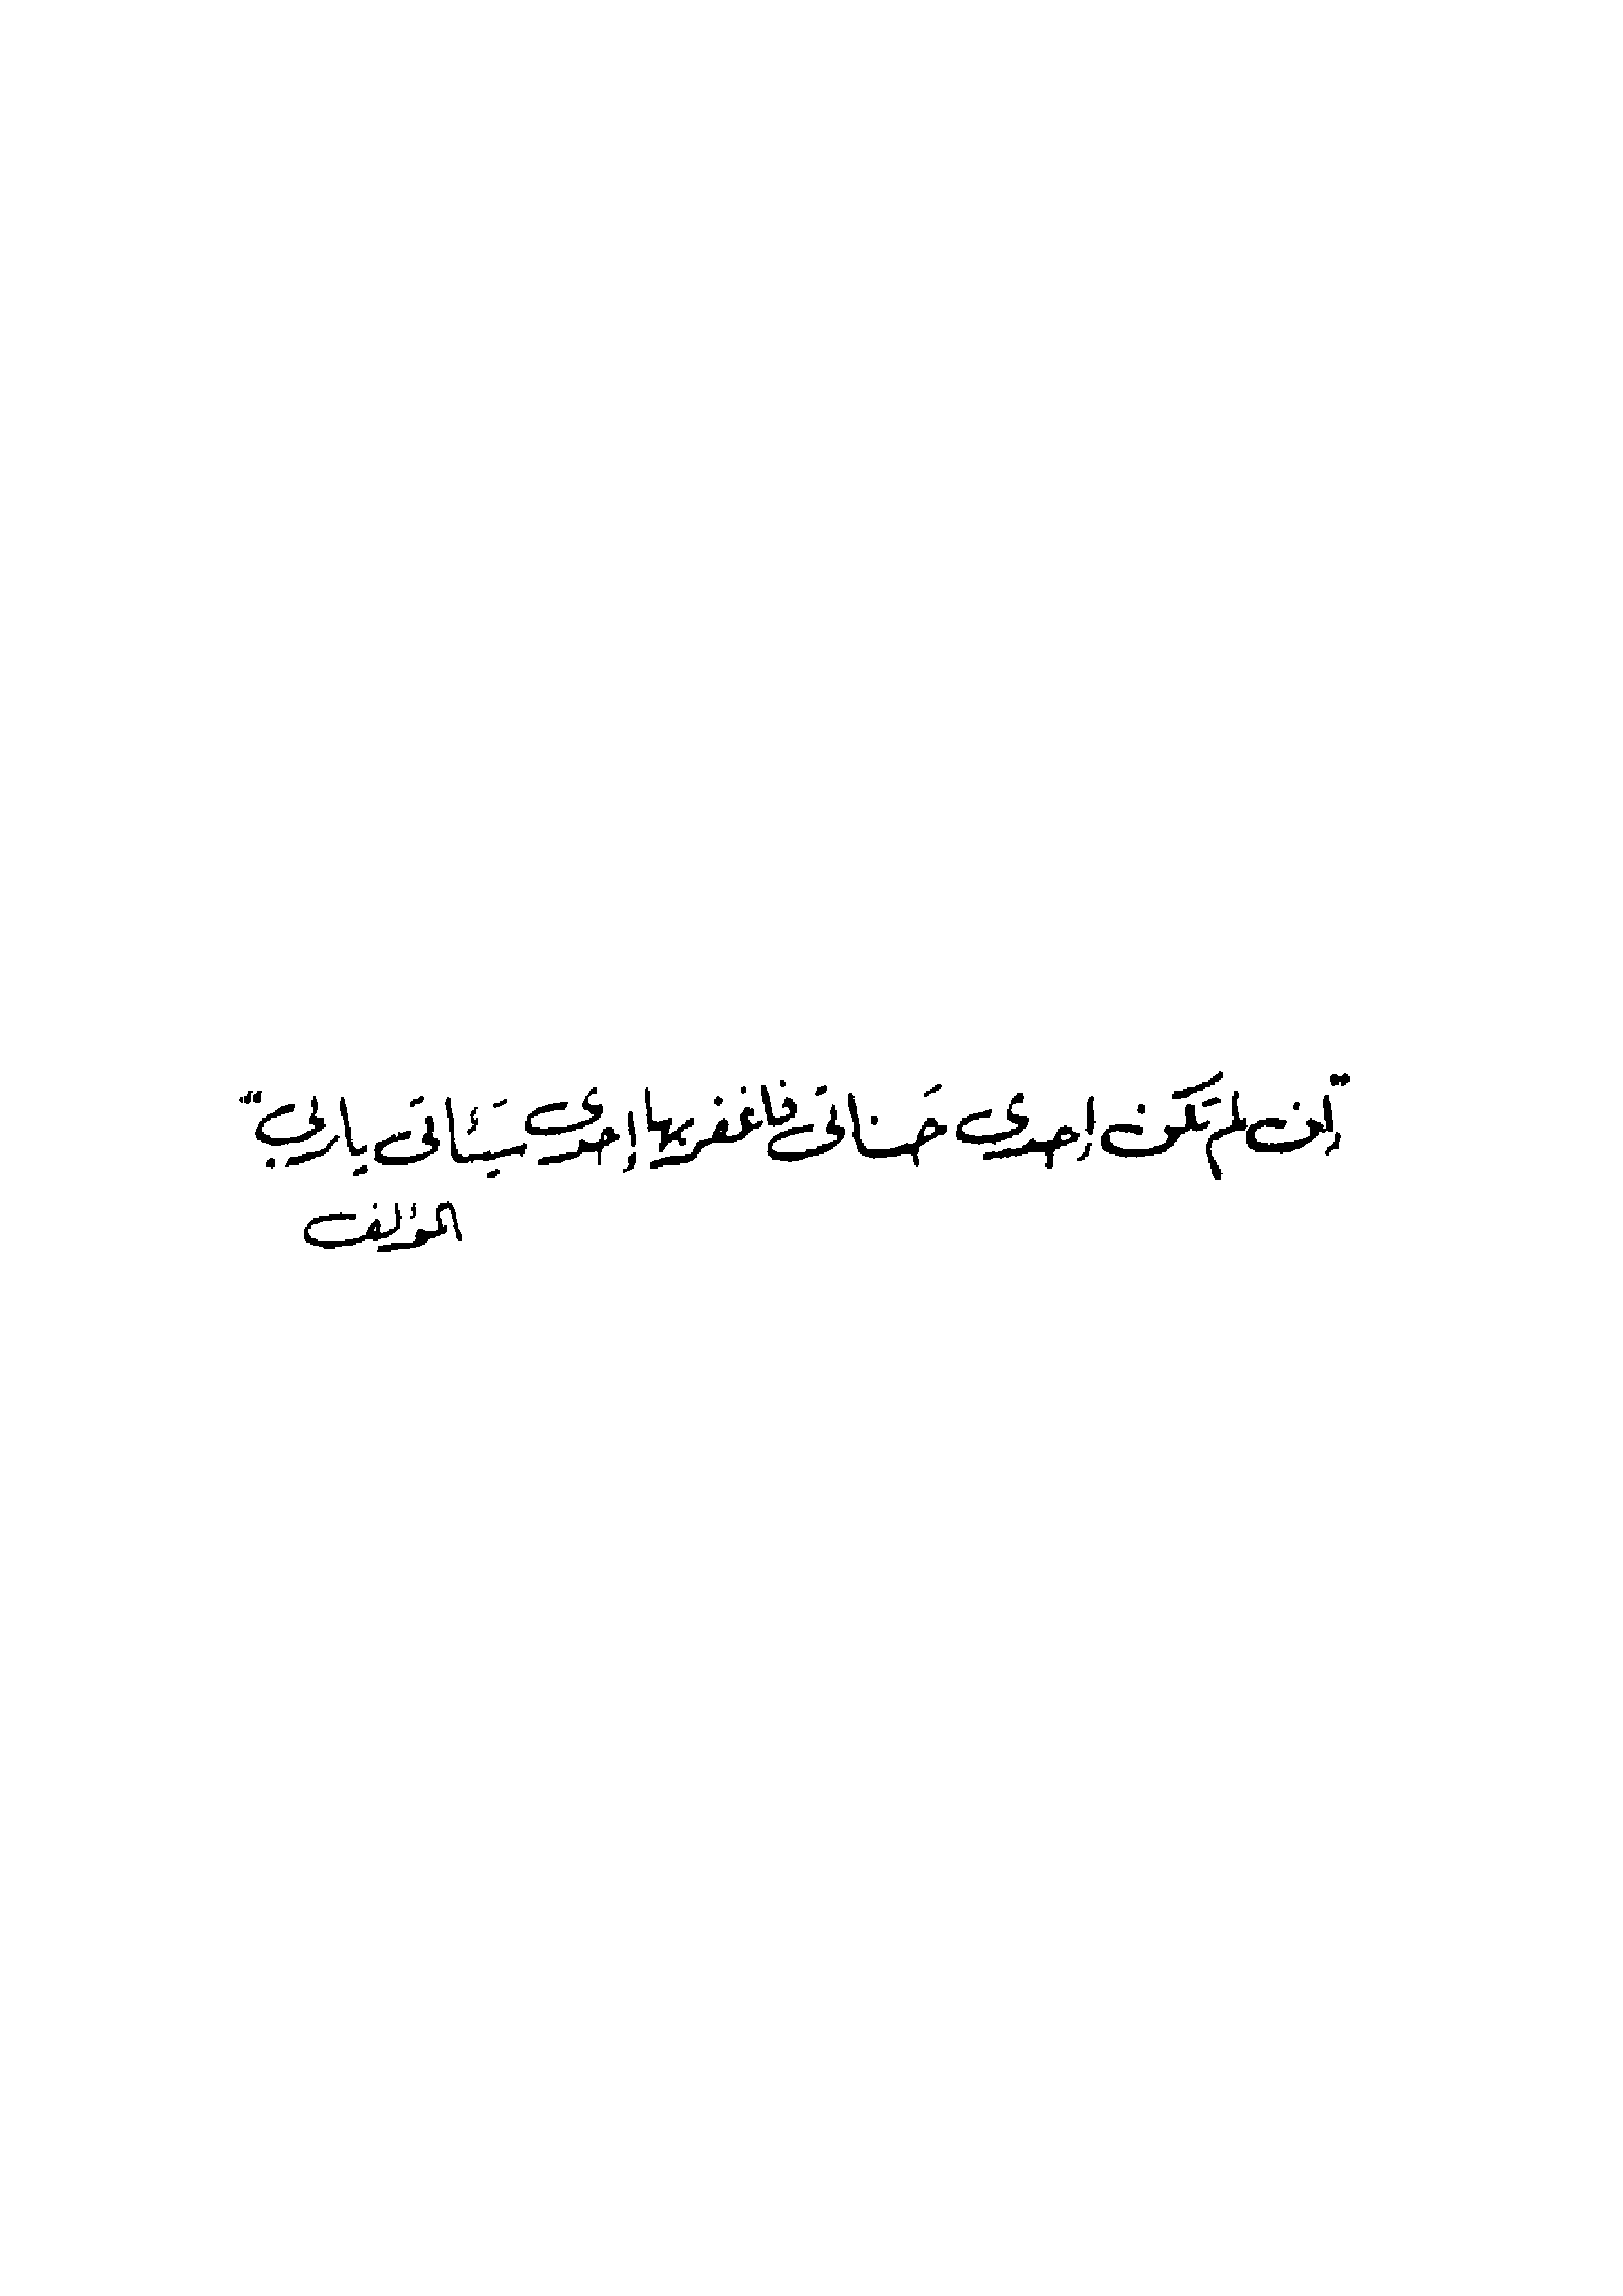 "إن لم تكن إحدى حسناتى فاغفر بها إحدى سيئاتى ياربى"
المؤلف